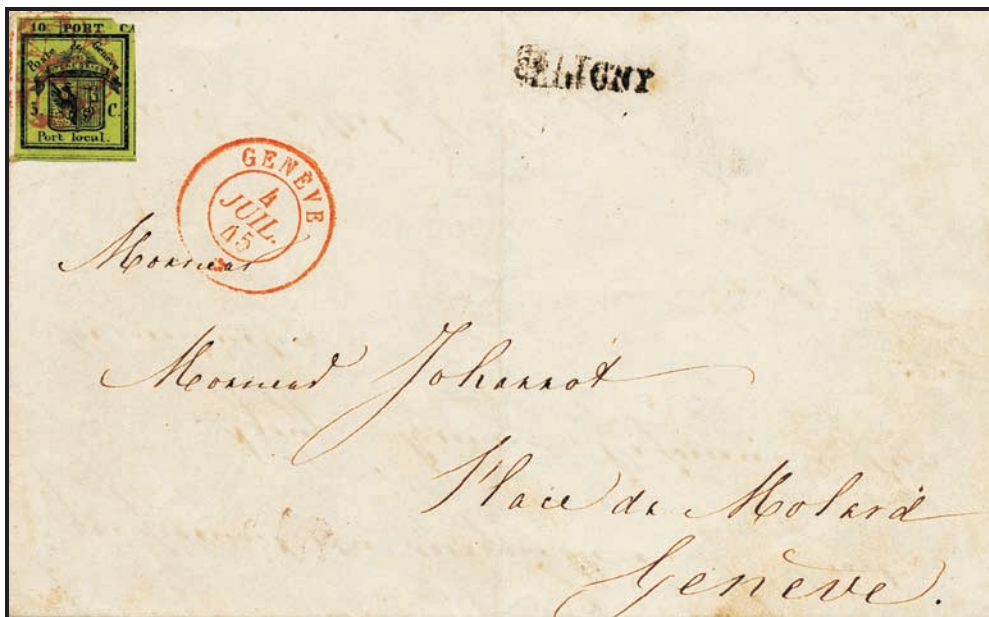 10 PORT CA
Poste de Genève
5 C.
Port local.
GENÈVE
4
JUIL.
45
Monsieur
Monsieur Johannot
Place du Molard
Genève.